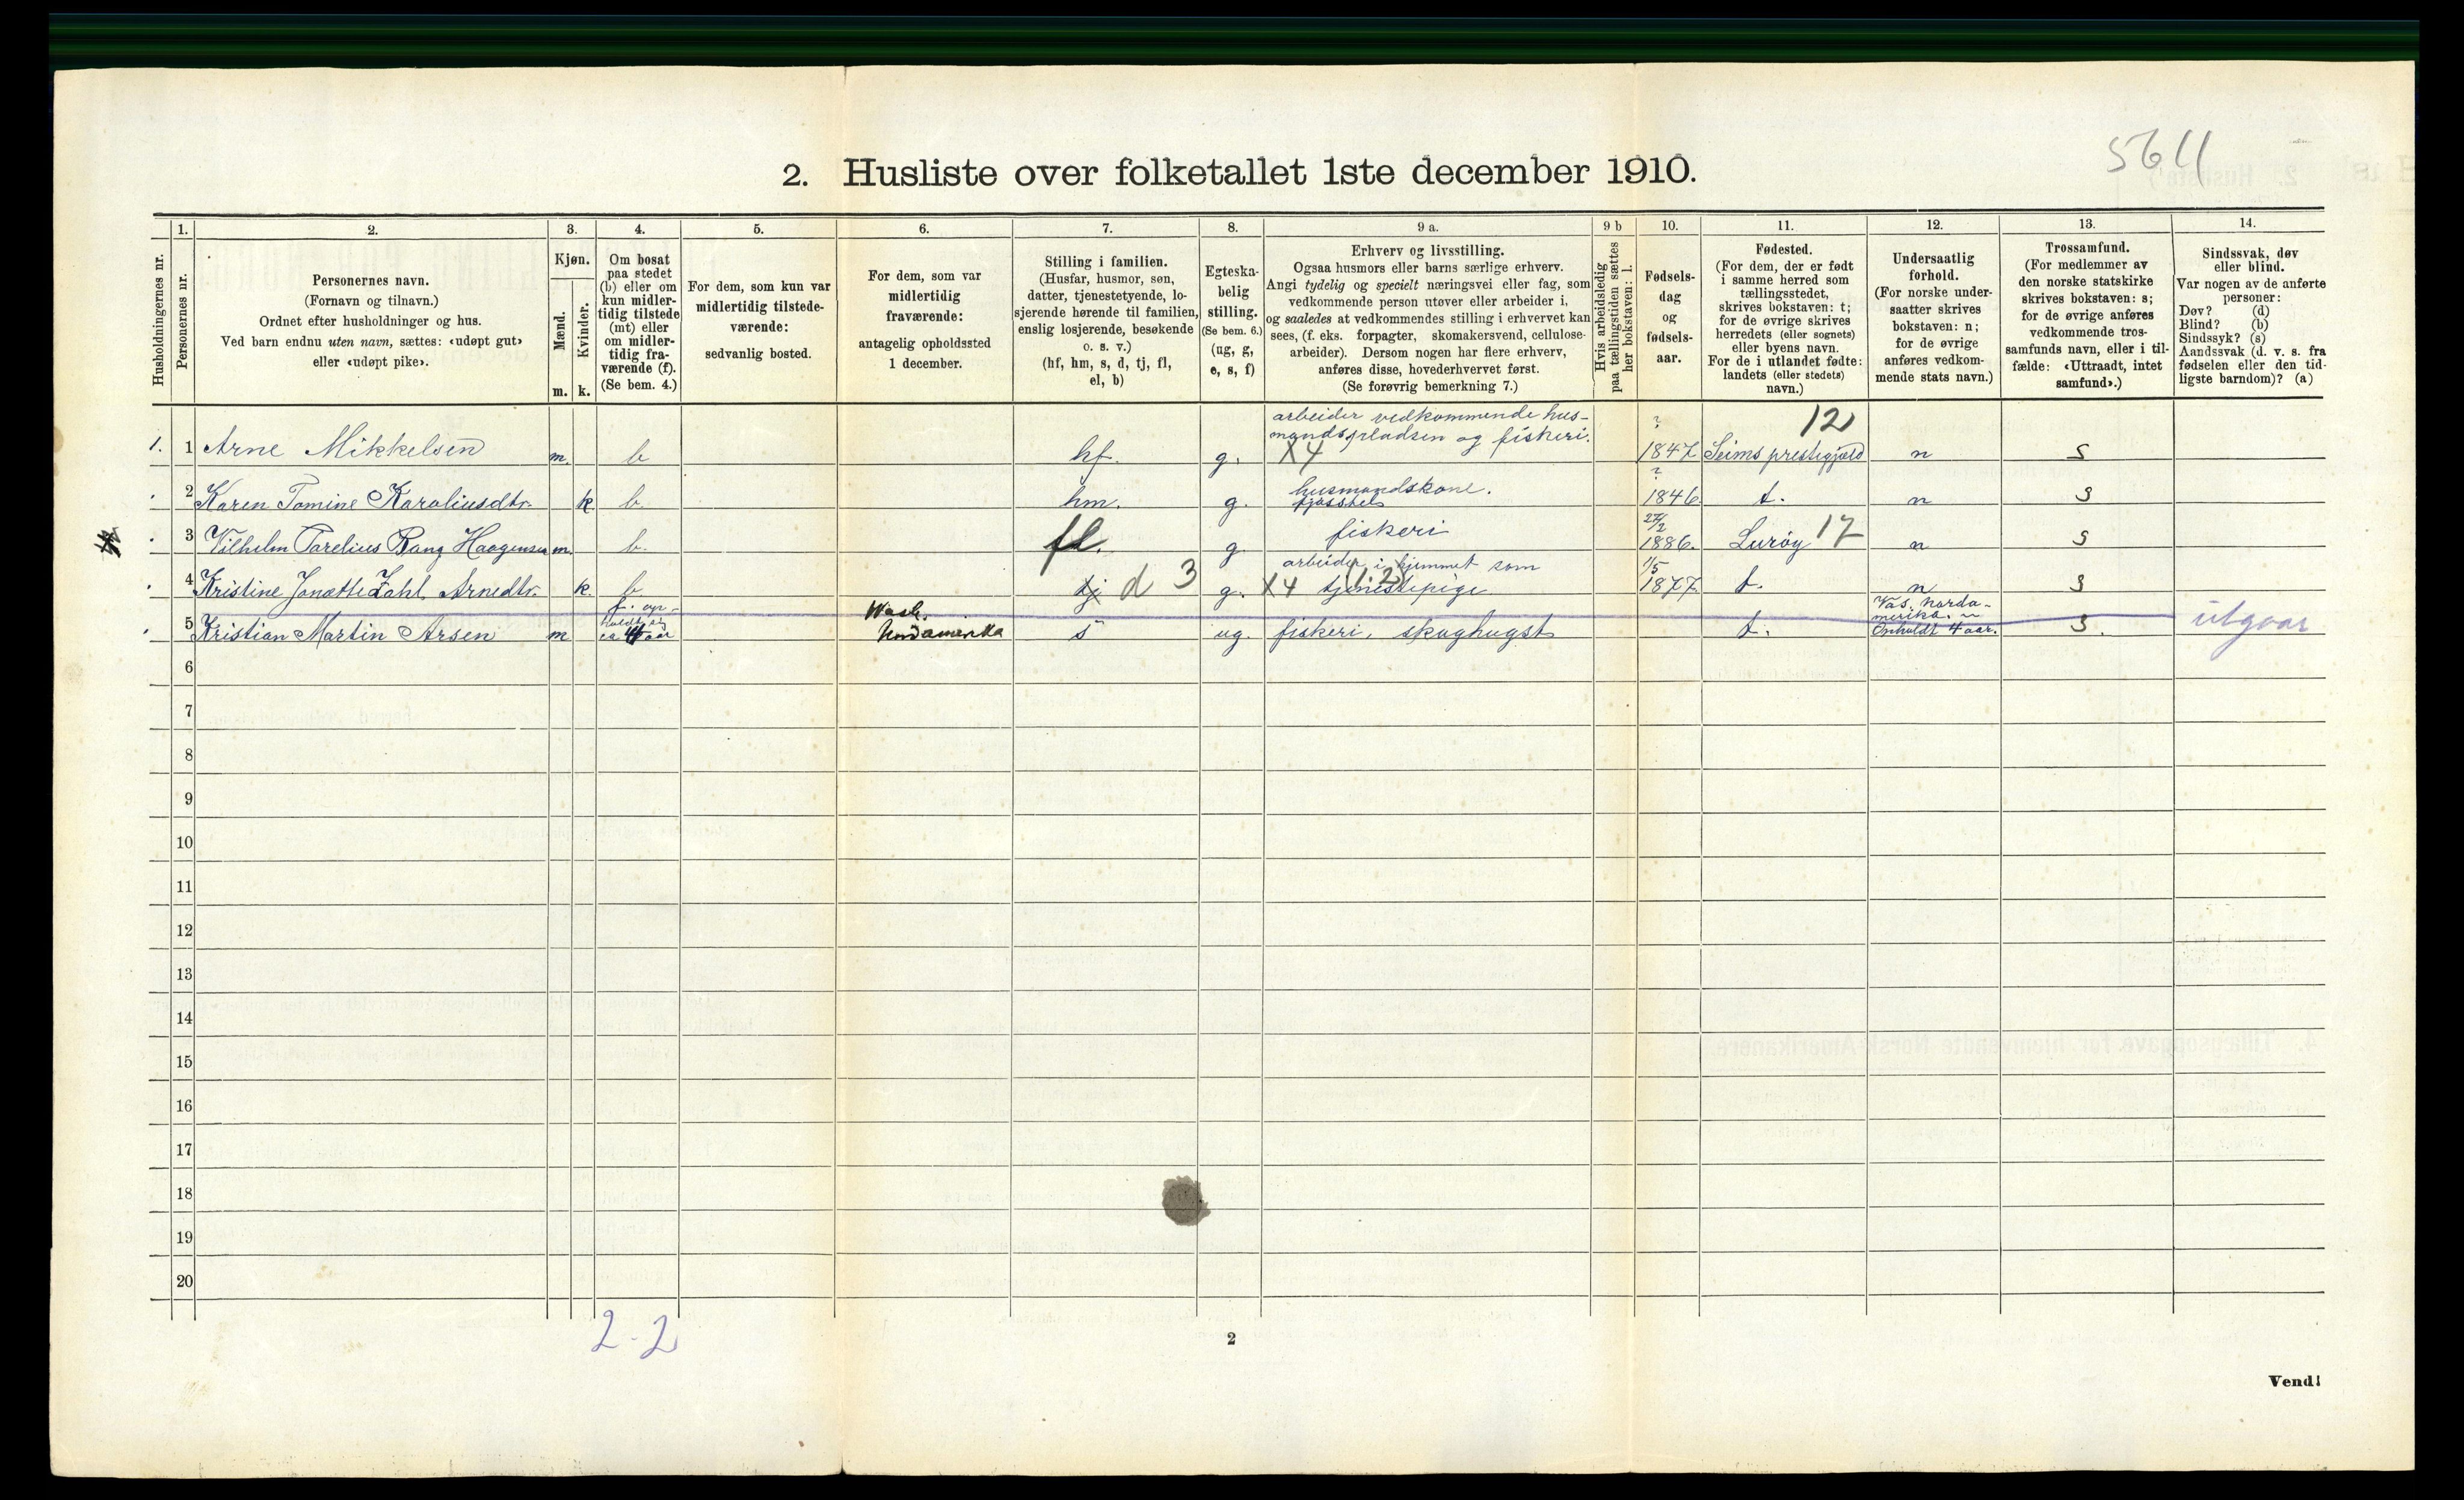 5611
2. Husliste over folketallet 1ste december 1910.
Husholdningernes nr.
1.
Personernes nr.
2.
Personernes navn.
(Fornavn og tilnavn.)
Ordnet efter husholdninger og hus.
Ved barn endnu uten navn, sættes: «udøpt gut»
eller «udøpt pike».
3.
Kjøn.
Mænd.
Kvinder.
m. k.
4.
Om bosat
paa stedet
(b) eller om
kun midler-
tidig tilstede
(mt) eller
om midler-
tidig fra-
værende (f).
(Se bem. 4.)
5.
For dem, som kun var
midlertidig tilstede-
værende:
sedvanlig bosted.
6.
For dem, som var
midlertidig
fraværende:
antagelig opholdssted
1 december.
7.
Stilling i familien.
(Husfar, husmor, søn,
datter, tjenestetyende, lo-
sjerende hørende til familien,
enslig losjerende, besøkende
o. s. v.)
(hf, hm, s, d, tj, fl,
el, b)
8.
Egteska-
belig
stilling.
(Se bem. 6.)
(ug, g,
e, s, f)
9 a.
Erhverv og livsstilling.
Ogsaa husmors eller barns særlige erhverv.
Angi tydelig og specielt næringsvei eller fag, som
vedkommende person utøver eller arbeider i,
og saaledes at vedkommendes stilling i erhvervet kan
sees, (f. eks. forpagter, skomakersvend, cellulose-
arbeider). Dersom nogen har flere erhverv,
anføres disse, hovederhvervet først.
(Se forøvrig bemerkning 7.)
9 b
Hvis arbeidsledig
paa tællingstiden sættes
her bokstaven: l.
10.
Fødsels-
dag
og
fødsels-
aar.
11.
Fødested.
(For dem, der er født
i samme herred som
tællingsstedet,
skrives bokstaven: t;
for de øvrige skrives
herredets (eller sognets)
eller byens navn.
For de i utlandet fødte:
landets (eller stedets)
navn.)
12.
Undersaatlig
forhold.
(For norske under-
saatter skrives
bokstaven: n;
for de øvrige
anføres vedkom-
mende stats navn.)
13.
Trossamfund.
(For medlemmer av
den norske statskirke
skrives bokstaven: s;
for de øvrige anføres
vedkommende tros-
samfunds navn, eller i til-
fælde: «Uttraadt, intet
samfund».)
14.
Sindssvak, døv
eller blind.
Var nogen av de anførte
personer:
Døv? (d)
Blind? (b)
Sindssyk? (s)
Aandssvak (d. v. s. fra
fødselen eller den tid-
ligste barndom)? (a)
arbeider vedkommende hus-
mandspladsen og fiskeri. ? 12
1. 1 Arne Mikkelsen m. b hf. g. X4 1847 Seims prestegjæld n s
2 Karen Tomine Karoliusdtr. k b hm. g. husmandskone. ? 1846 t. n s
fjøsstel
3 Vilhelm Torelius Rang Haagensen m. b. fl. g. fiskeri 27/2 1886. Lurøy 17 n s
arbeider i hjemmet som
4 Kristine Jonette Zahl Arnedtr. k. b tj d 3 g. X4 tjenestepige (12) 1/5 1877 t. n s
f. op-
holdt sig
ca 4 aar
Wash.
Nordamerika
5 Kristian Martin Arsen m s ug. fiskeri, skoghugst t. s. utgaar
Vas. Norda-
merika.
Opholdt 4 aar.
6
7
8
9
10
11
12
13
14
15
16
17
18
19
20
2-2
2
Vend!